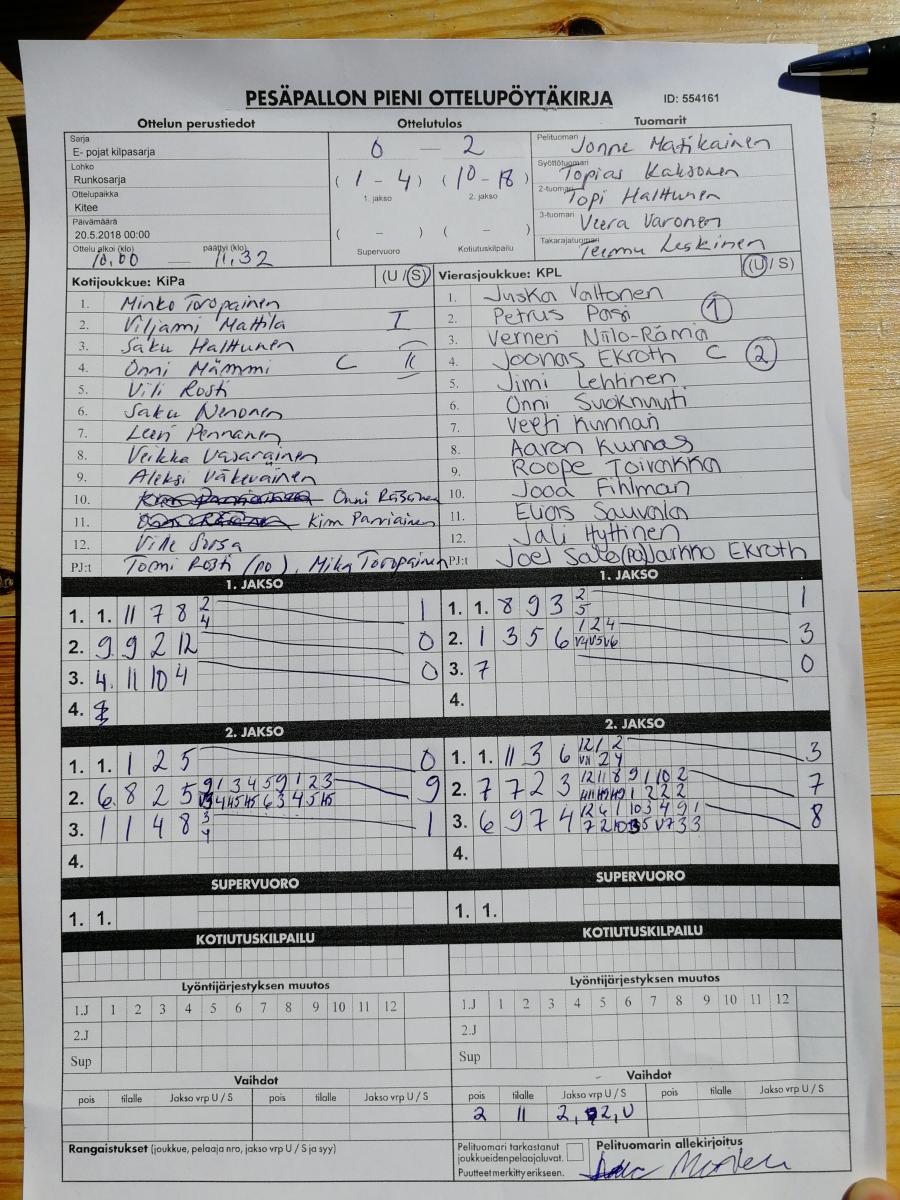 PESÄPALLON PIENI OTTELUPÖYTÄKIRJA ID: 554161
Ottelun perustiedot Ottelutulos Tuomarit
Sarja
E- pojat kilpasarja
Lohko
Runkosarja
Ottelupaikka
Kitee
Päivämäärä
20.5.2018 00:00
Ottelu alkoi (klo) päättyi (klo)
10.00 — 11.32
0 — 2
( 1 - 4 ) ( 10 - 18 )
1. jakso 2. jakso
( - ) ( - )
Supervuoro Kotiutuskilpailu
Pelituomari Jonne Matikainen
Syöttötuomari Topias Kaksonen
2-tuomari Topi Halttunen
3-tuomari Veera Varonen
Takarajatuomari Teemu Leskinen
Kotijoukkue: KiPa (U / S)
1. Minko Toropainen
2. Viljami Mattila I
3. Saku Halttunen
4. Onni Mämmi C II
5. Vili Rosti
6. Saku Nenonen
7. Leevi Pennanen
8. Veikka Vasarainen
9. Aleksi Väkeväinen
10. Onni Räsänen
11. Kim Parviainen
12. Ville Sorsa
PJ:t Tomi Rosti (po), Mika Toropainen
Vierasjoukkue: KPL (U / S)
1. Juska Valtonen
2. Petrus Pasi 1
3. Verneri Niilo-Rämä
4. Joonas Ekroth C 2
5. Jimi Lehtinen
6. Onni Suoknuuti
7. Veeti Kunnari
8. Aaron Kunnas
9. Roope Toivakka
10. Jooa Fihlman
11. Elias Sauvala
12. Jali Hyttinen
PJ:t Joel Salo (po) Jarkko Ekroth
1. JAKSO
1. 1. 11 7 8 2 1
4
2. 9 9 2 12 0
3. 4. 11 10 4 0
4.
1. JAKSO
1. 1. 8 9 3 2 1
5
2. 1 3 5 6 1 2 4 3
V4 V5 V6
3. 7 0
4.
2. JAKSO
1. 1. 1 2 5 0
2. 6. 8 2 5 9 1 3 4 5 9 1 2 3 9
3. 1 1 4 8 3 1
4
4.
2. JAKSO
1. 1. 11 3 6 12 1 2 3
2. 7 7 2 3 12 11 8 9 1 10 2 7
3. 6 9 7 4 12 6 1 10 3 4 9 1 8
4.
SUPERVUORO
1. 1.
SUPERVUORO
1. 1.
KOTIUTUSKILPAILU
KOTIUTUSKILPAILU
Lyöntijärjestyksen muutos
1.J 1 2 3 4 5 6 7 8 9 10 11 12
2.J
Sup
Lyöntijärjestyksen muutos
1.J 1 2 3 4 5 6 7 8 9 10 11 12
2.J
Sup
Vaihdot
pois tilalle Jakso vrp U / S pois tilalle Jakso vrp U / S
Vaihdot
pois tilalle Jakso vrp U / S pois tilalle Jakso vrp U / S
2 11 2, 2, U
Rangaistukset (joukkue, pelaaja nro, jakso vrp U / S ja syy)
Pelituomari tarkastanut
joukkueiden pelaajaluvat.
Puutteet merkitty erikseen.
Pelituomarin allekirjoitus